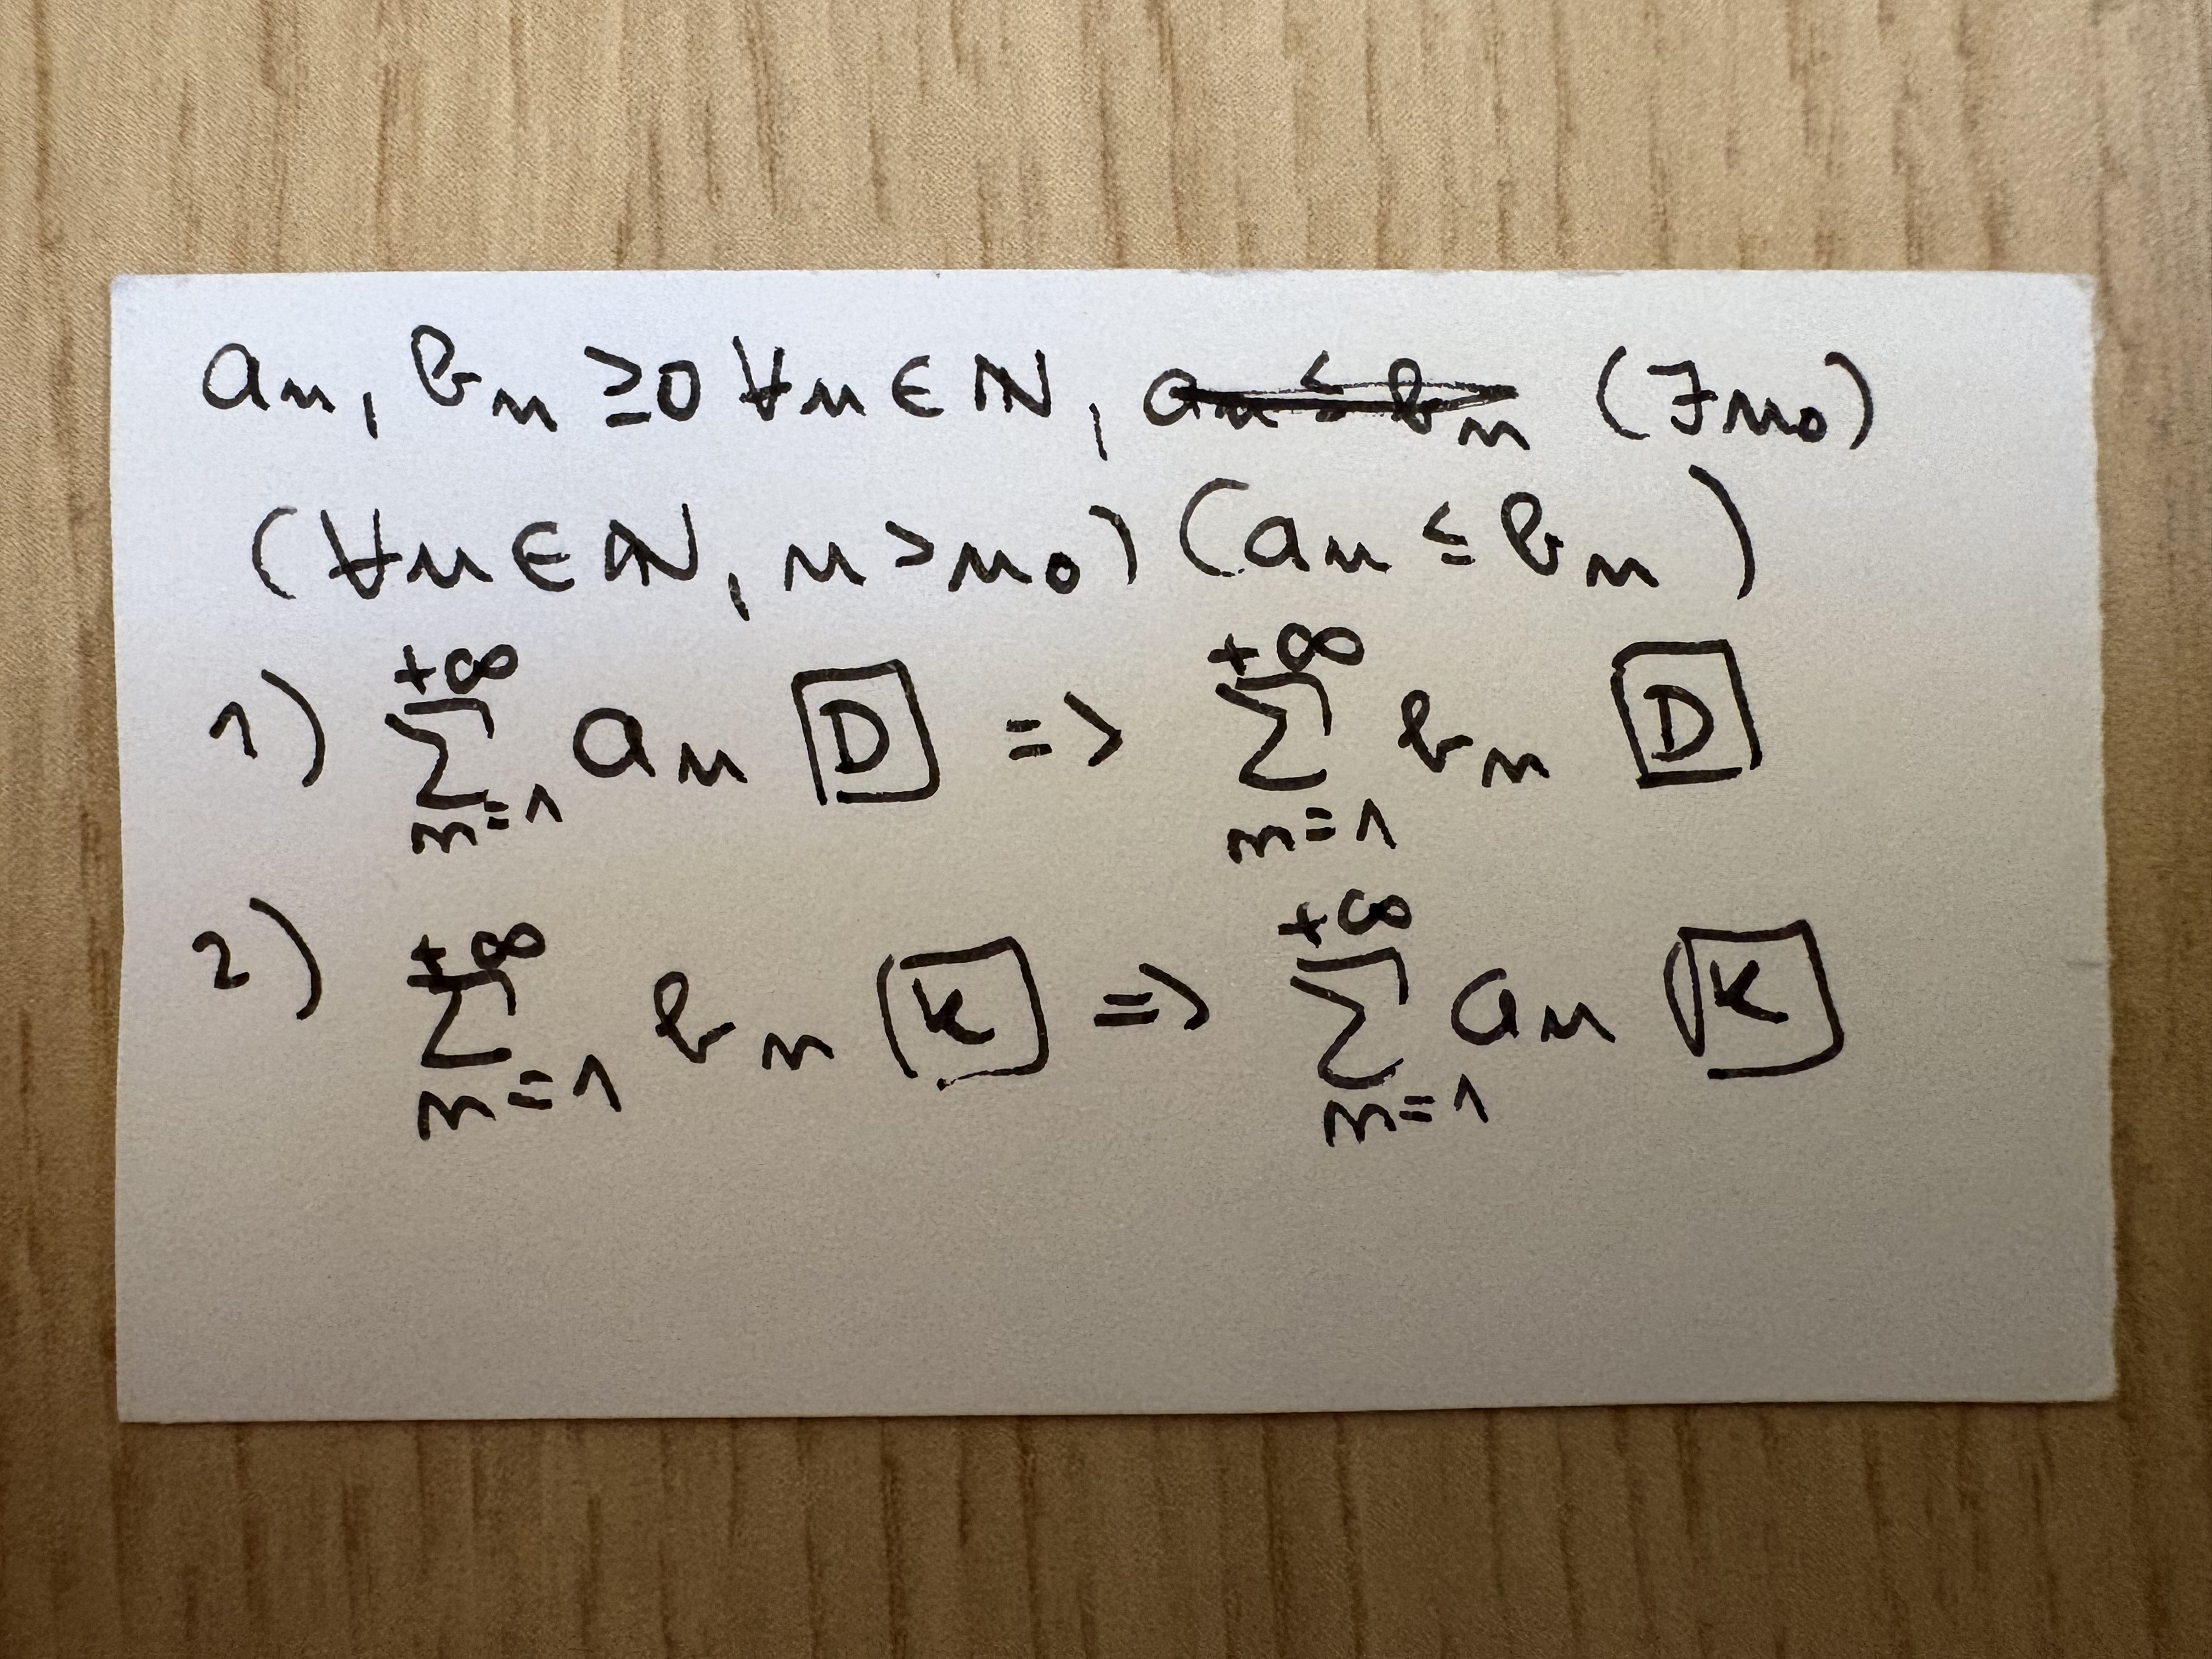 aₙ, bₙ ≥ 0 ∀n ∈ ℕ, ~~aₙ ≤ bₙ~~ (∃n₀)
(∀n ∈ ℕ, n > n₀) (aₙ ≤ bₙ)
1) ∑_{n=1}^{+∞} aₙ [D] => ∑_{n=1}^{+∞} bₙ [D]
2) ∑_{n=1}^{+∞} bₙ [K] => ∑_{n=1}^{+∞} aₙ [K]